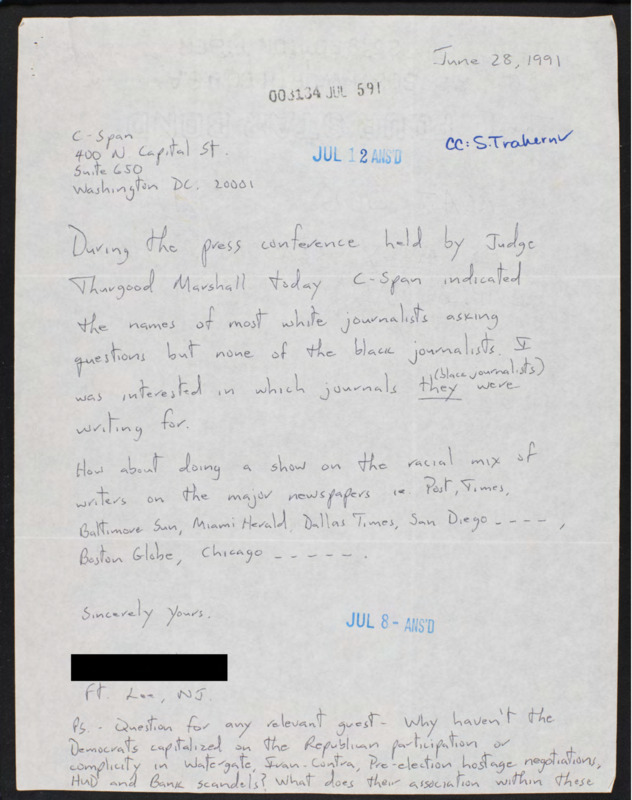 June 28, 1991
003134 JUL 591
C-Span
400 N Capital St.
Suite 650
Washington DC. 20001
JUL 12 ANS'D
CC: S. Trahern
During the press conference held by Judge
Thurgood Marshall today C-Span indicated
the names of most white journalists asking
questions but none of the black journalists. I
was interested in which journals they (black journalists) were
writing for.
How about doing a show on the racial mix of
writers on the major newspapers ie Post, Times,
Baltimore Sun, Miami Herald, Dallas Times, San Diego ----,
Boston Globe, Chicago -----.
Sincerely Yours.
JUL 8 - ANS'D
Ft. Lee, NJ.
Ps. - Question for any relevant guest - Why haven't the
Democrats capitalized on the Republican participation or
complicity in Watergate, Iran-Contra, Pre-election hostage negotiations,
HUD and Bank scandels? What does their association within these